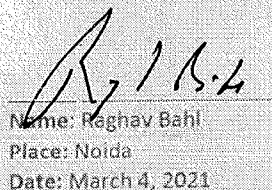 Name: Raghav Bahl
Place: Noida
Date: March 4, 2021